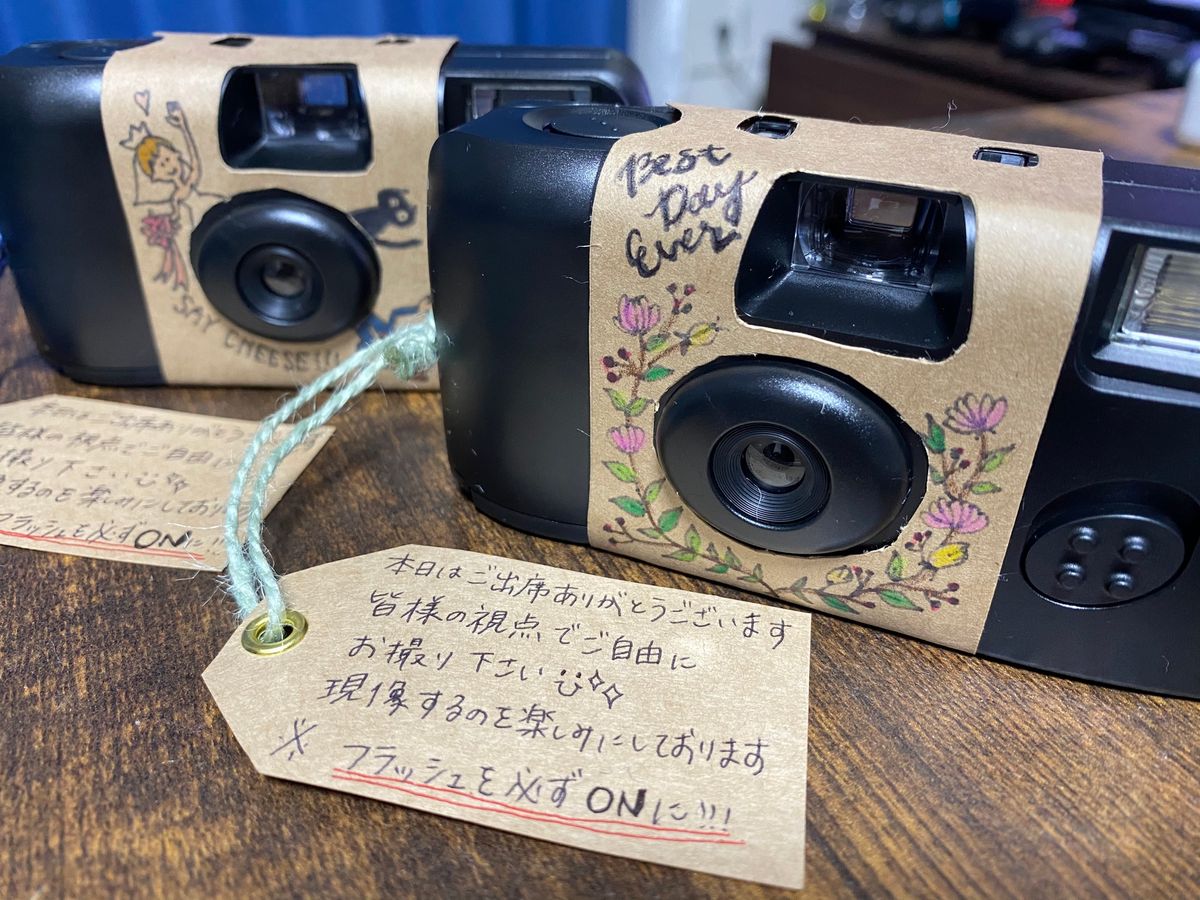 SAY CHEESE!!!
Best
Day
Ever
本日はご出席ありがとうございます
皆様の視点でご自由に
お撮り下さい
現像するのを楽しみにしております
※ フラッシュを必ずONに!!!
ありがとう
様の視点でご自由に
撮り下さい
するのを楽しみにしており
フラッシュを必ずONに!!